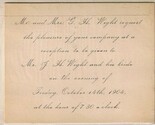 Mr. and Mrs. G. H. Wight request
the pleasure of your company at a
reception to be given to
Mr. G. H. Wight and his bride
on the evening of
Friday, October 14th, 1904,
at the hour of 7.30 o'clock.